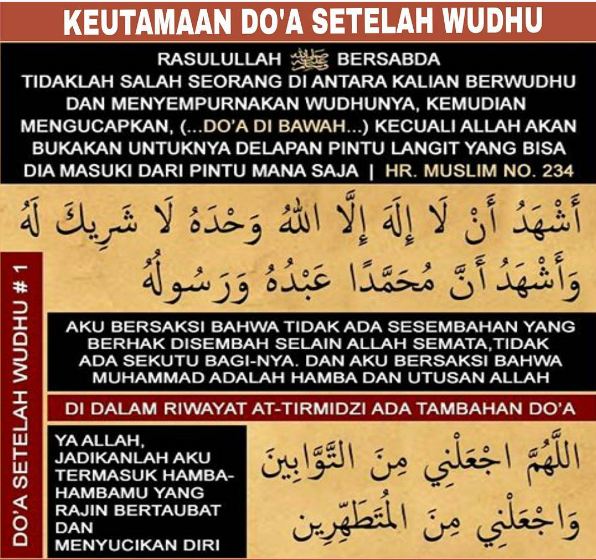 KEUTAMAAN DO'A SETELAH WUDHU
RASULULLAH ﷺ BERSABDA
TIDAKLAH SALAH SEORANG DI ANTARA KALIAN BERWUDHU
DAN MENYEMPURNAKAN WUDHUNYA, KEMUDIAN
MENGUCAPKAN, (...DO'A DI BAWAH...) KECUALI ALLAH AKAN
BUKAKAN UNTUKNYA DELAPAN PINTU LANGIT YANG BISA
DIA MASUKI DARI PINTU MANA SAJA | HR. MUSLIM NO. 234
أَشْهَدُ أَنْ لَا إِلَهَ إِلَّا اللهُ وَحْدَهُ لَا شَرِيكَ لَهُ
وَأَشْهَدُ أَنَّ مُحَمَّدًا عَبْدُهُ وَرَسُولُهُ
DO'A SETELAH WUDHU # 1
AKU BERSAKSI BAHWA TIDAK ADA SESEMBAHAN YANG
BERHAK DISEMBAH SELAIN ALLAH SEMATA,TIDAK
ADA SEKUTU BAGI-NYA. DAN AKU BERSAKSI BAHWA
MUHAMMAD ADALAH HAMBA DAN UTUSAN ALLAH
DI DALAM RIWAYAT AT-TIRMIDZI ADA TAMBAHAN DO'A
اللَّهُمَّ اجْعَلْنِي مِنَ التَّوَّابِينَ
وَاجْعَلْنِي مِنَ الْمُتَطَهِّرِين
YA ALLAH,
JADIKANLAH AKU
TERMASUK HAMBA-
HAMBAMU YANG
RAJIN BERTAUBAT
DAN
MENYUCIKAN DIRI